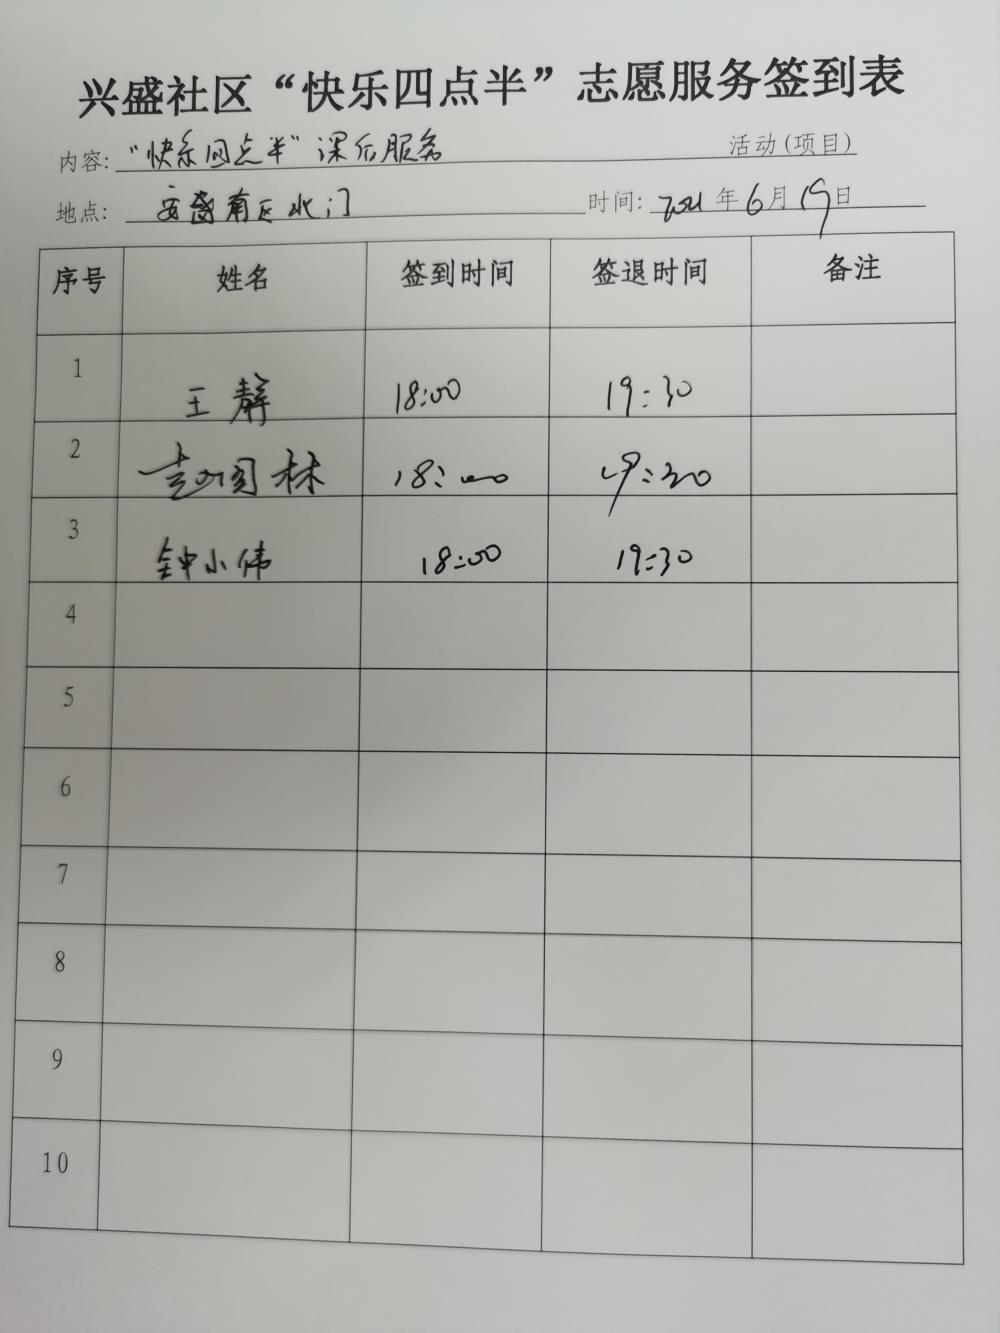 兴盛社区“快乐四点半”志愿服务签到表
内容: “快乐四点半”课后服务 活动(项目)
地点: 安居南区北门 时间: 2021年6月19日
序号 姓名 签到时间 签退时间 备注
1 王静 18:00 19:30
2 林 18:00 19:30
3 钟小伟 18:00 19:30
4
5
6
7
8
9
10